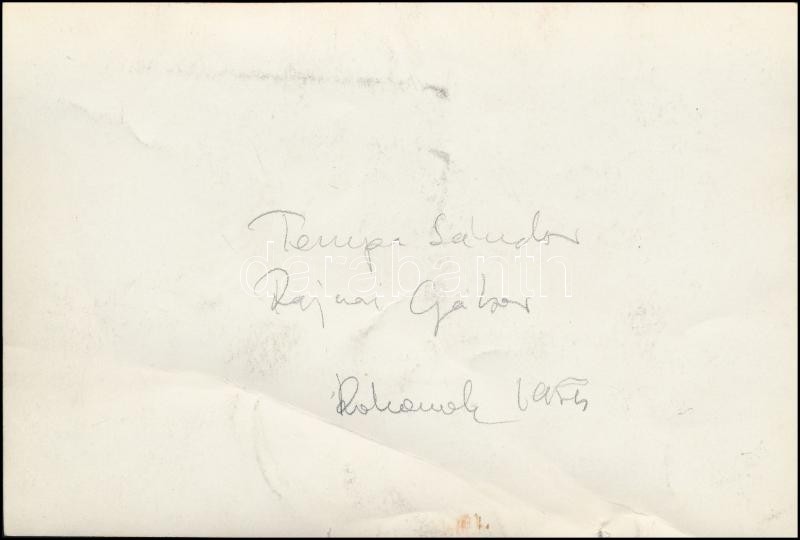 Tempa Sándor
darabanth
Rajnai Gábor
Rokonok 1954